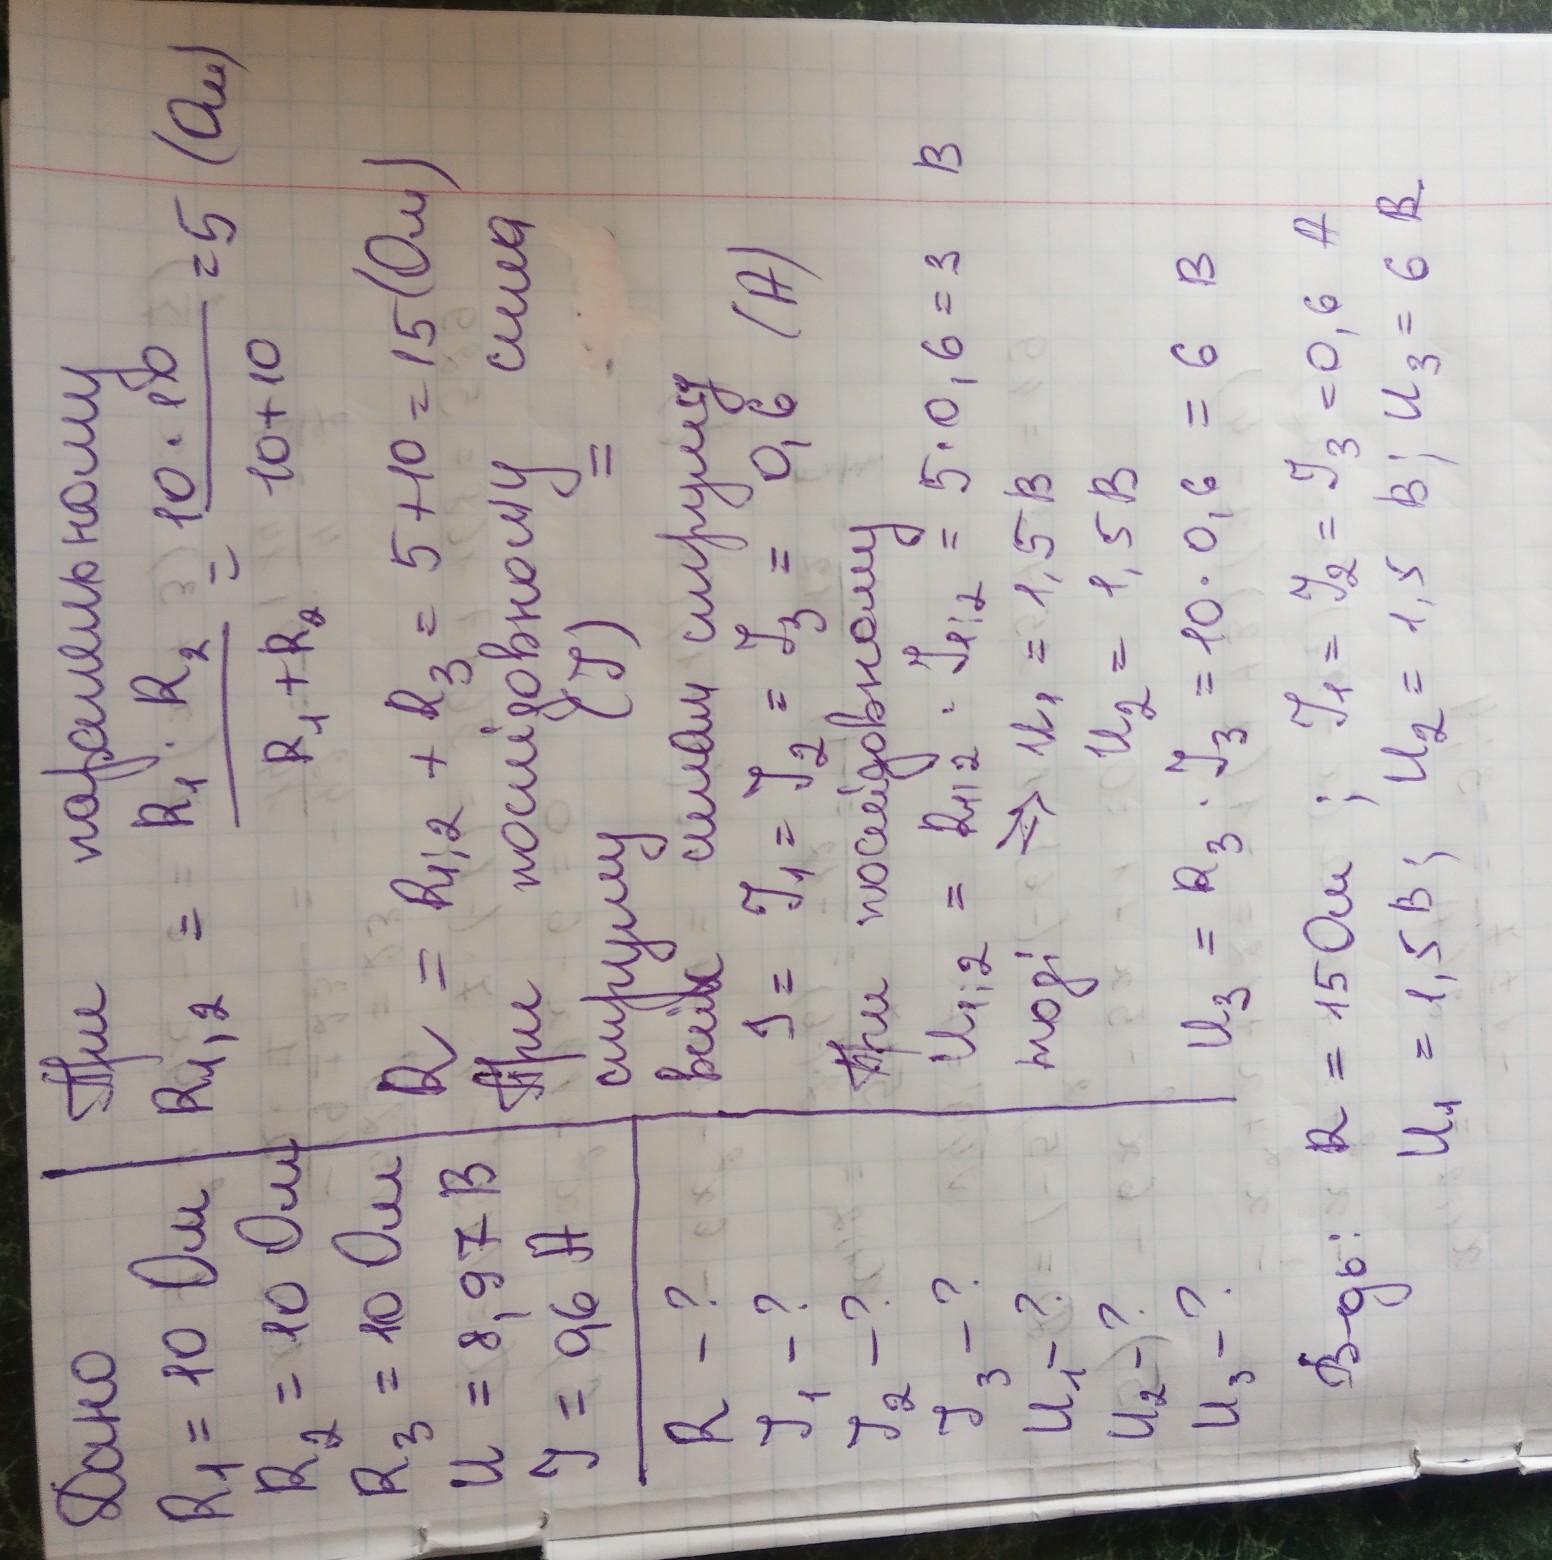 Дано
R₁ = 10 Ом
R₂ = 10 Ом
R₃ = 10 Ом
U = 8,97 В
I = 0,6 А
R - ?
I₁ - ?
I₂ - ?
I₃ - ?
U₁ - ?
U₂ - ?
U₃ - ?
При паралельному
R₁,₂ = R₁ · R₂ / R₁ + R₂ = 10 · 10 / 10 + 10 = 5 (Ом)
R = R₁;₂ + R₃ = 5 + 10 = 15 (Ом)
При послідовному сила
струму (I) =
всім силам струму
I = I₁ = I₂ = I₃ = 0,6 (А)
При послідовному
U₁;₂ = R₁;₂ · I₁;₂ = 5 · 0,6 = 3 В
тоді => U₁ = 1,5 В
U₂ = 1,5 В
U₃ = R₃ · I₃ = 10 · 0,6 = 6 В
В-дь: R = 15 Ом ; I₁ = I₂ = I₃ = 0,6 А
U₁ = 1,5 В; U₂ = 1,5 В; U₃ = 6 В